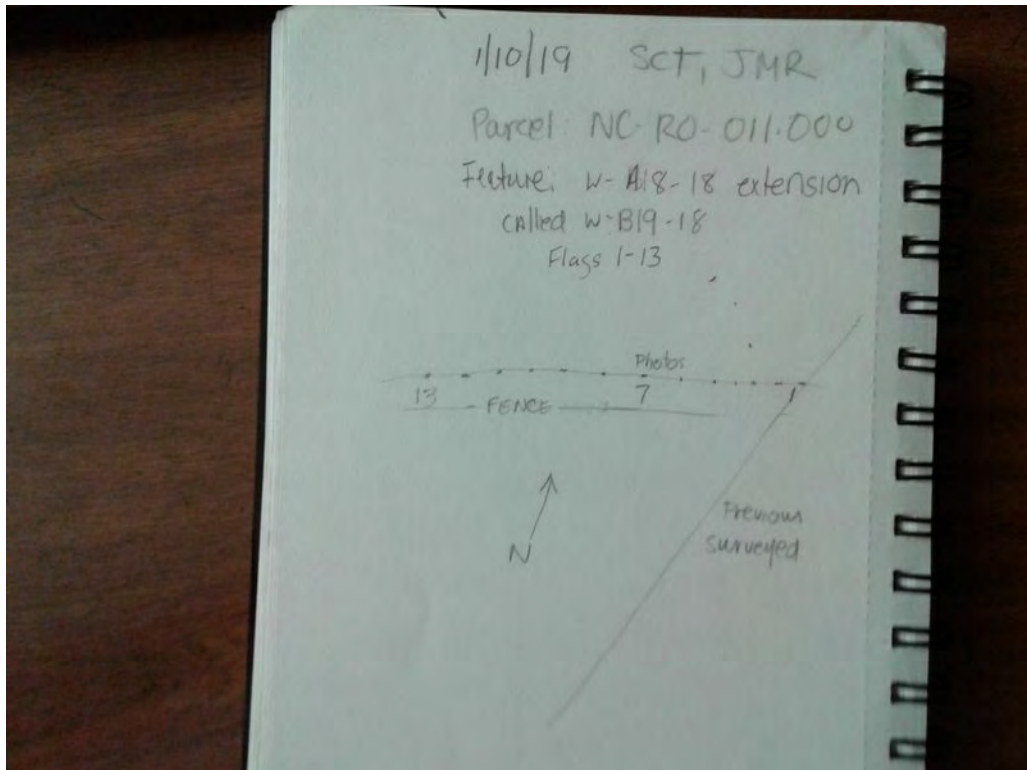 1/10/19 SCT, JMR
Parcel: NC-RO-011.000
Feature: W-A18-18 extension
called W-B19-18
Flags 1-13
Photos
13 7 1
FENCE
N
Previous
surveyed